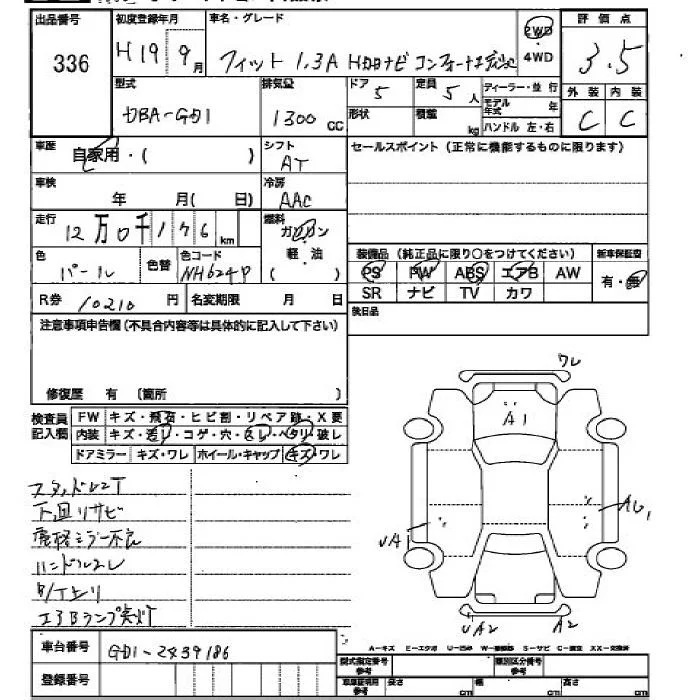 出品番号 初度登録年月 車名・グレード 2WD 評価点
336 H19 9月 フィット 1.3A HDDナビ 4WD 3.5
型式 排気量 ドア 定員 ディーラー・並行 外装 内装
DBA-GD1 1300 cc 5 5人 モデル年式 年 C C
形状 積載 kg ハンドル 左・右
車歴 自家用・( ) シフト AT セールスポイント (正常に機能するものに限ります)
車検 年 月( 日) 冷房 AAC
走行 12万0千176km 燃料 ガソリン 軽・油 ( )
装備品 (純正品に限り○をつけてください) 新車保証型
色 パール 色替 色コード NH624P PS PW ABS エアB AW 有・無
R券 10210円 名変期限 月 日 SR ナビ TV カワ
注意事項申告欄(不具合内容等は具体的に記入して下さい) 後日品
修復歴 有 (箇所 )
検査員記入欄 FW キズ・飛石・ヒビ割・リペア跡・X要
内装 キズ・汚レ・コゲ・穴・スレ・ヘタリ・破レ
ドアミラー キズ・ワレ ホイール・キャップ キズ・ワレ
ワレ
A1
下回リサビ
ハンドルスレ
エアBランプ点灯
UA2 A2
車台番号 GD1-2439186
A-キズ E-エクボ U-凹み S-サビ C-腐食 XX-交換済
登録番号 型式指定番号 類別区分番号
長さ cm 幅 cm 高さ cm